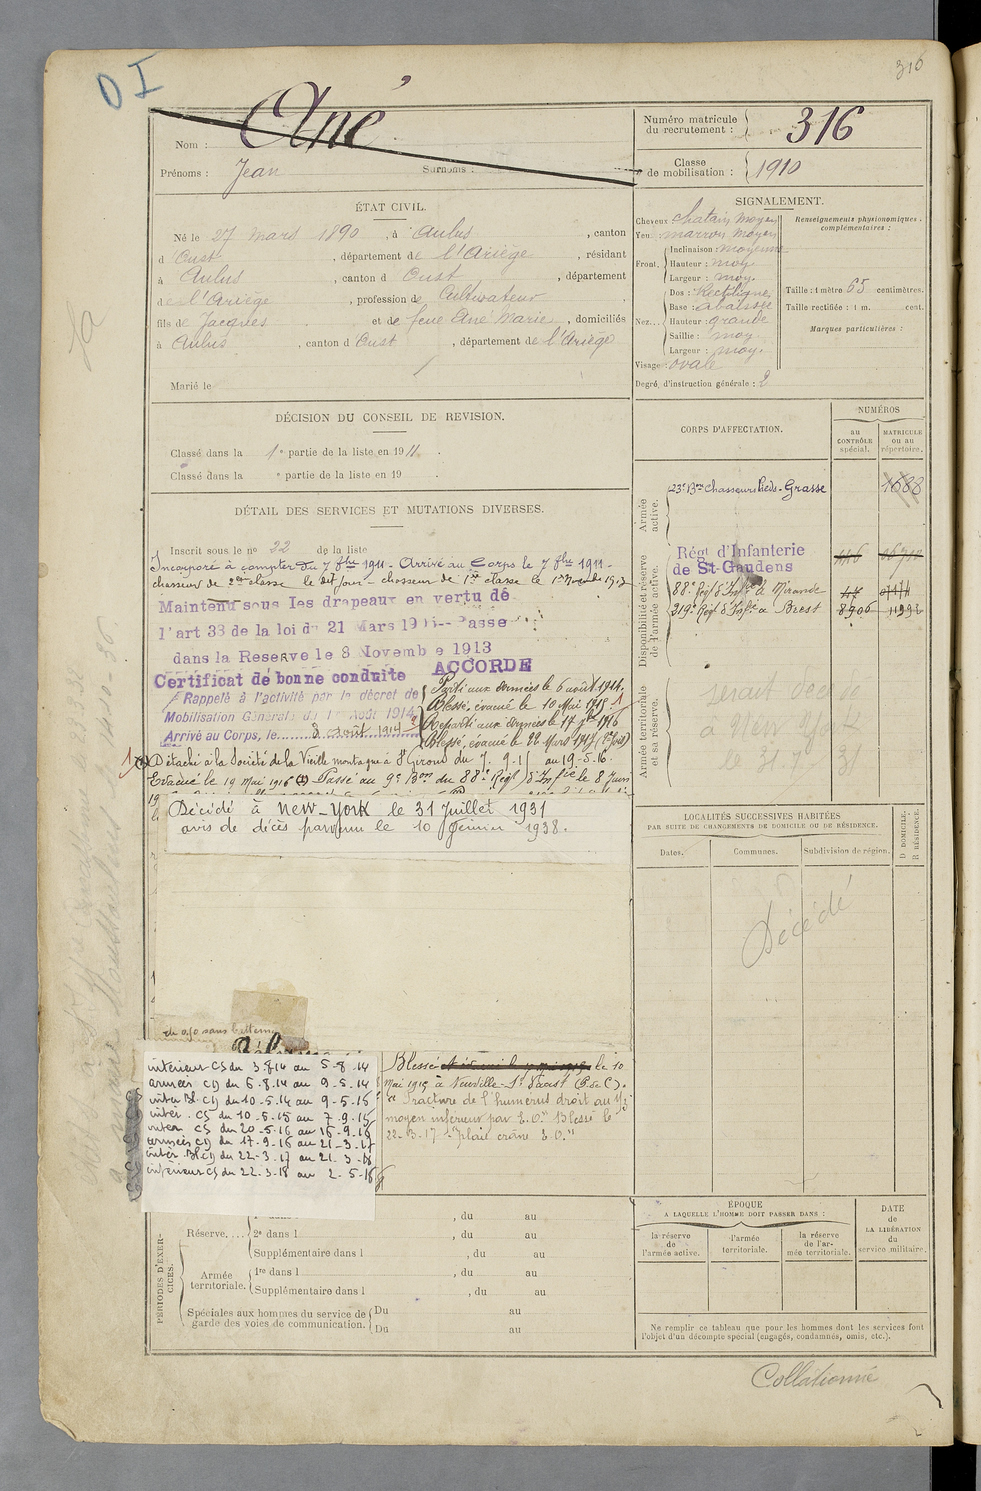 316
O I
Nom : Ané
Prénoms : Jean Surnoms :
Numéro matricule du recrutement : 316
Classe de mobilisation : 1910
ÉTAT CIVIL.
Né le 27 Mars 1890, à Aulus, canton
d'Oust, département de l'Ariège, résidant
à Aulus, canton d'Oust, département
de l'Ariège, profession de Cultivateur
fils de Jacques et de feue Ané Marie, domiciliés
à Aulus, canton d'Oust, département de l'Ariège
Marié le
SIGNALEMENT.
Cheveux chatain moyen
Yeux marron moyen
Front. Inclinaison : moyenne
Hauteur : moy
Largeur : moy.
Nez... Dos : Rectiligne
Base : abaissée
Hauteur : grande
Saillie : moy
Largeur : moy.
Visage : ovale
Renseignements physionomiques complémentaires :
Taille : 1 mètre 65 centimètres.
Taille rectifiée : 1 m. cent.
Marques particulières :
Degré d'instruction générale : 2
DÉCISION DU CONSEIL DE REVISION.
Classé dans la 1e partie de la liste en 1911.
Classé dans la e partie de la liste en 19
DÉTAIL DES SERVICES ET MUTATIONS DIVERSES.
Inscrit sous le no 22 de la liste
Incorporé à compter du 7 8bre 1911 - Arrivé au Corps le 7 8bre 1911 -
chasseur de 2e classe le dit jour - chasseur de 1re classe le
Maintenu sous les drapeaux en vertu de
l'art 33 de la loi du 21 Mars 19 -- Passé
dans la Reserve le 8 Novembre 1913
Certificat de bonne conduite ACCORDÉ
Rappelé à l'activité par le décret de
Mobilisation Générale du 1er Août 1914
Arrivé au Corps, le 3 août 1914
Parti aux armées le 6 août 1914.
Blessé, évacué le 10 Mai 1915
Reparti aux armées le 17 7bre 1916
Blessé, évacué le 22 Mars 1917
Détaché à la Société de la Vieille montagne à St Girons du 7. 9. 15 au 19-5-16
Evacué le 19 Mai 1916 Passé au 9e Bon du 88e Regt d'Infie le 8 Juin
Décédé à New-York le 31 Juillet 1931
avis de décès parvenu le 10 février 1938.
CORPS D'AFFECTATION.
NUMÉROS
au CONTRÔLE spécial.
MATRICULE ou au répertoire.
Armée active.
23e Bon Chasseurs Pieds - Grasse 1688
Disponibilité et réserve de l'armée active.
Régt d'Infanterie
de St-Gaudens 446
88e Régt d'Infie à Mirande
319e Régt d'Infie à Brest 8906
Armée territoriale et sa réserve.
serait décédé
à New York
le 31.7.31
LOCALITÉS SUCCESSIVES HABITÉES
PAR SUITE DE CHANGEMENTS DE DOMICILE OU DE RÉSIDENCE.
Dates. Communes. Subdivision de région.
D DOMICILE. R RÉSIDENCE.
Décédé
intérieur CS du 3.8.14 au 5-8-14
armées CD du 6.8.14 au 9-5-14
inter Bl CD du 10-5.14 au 9-5-15
intér. CS du 10-5.15 au 7-9.15
inter. CS du 20-5.16 au 16-9.16
armées CD du 17-9-16 au 21-3-17
intér. Bl CD du 22-3.17 au 21-3-18
intérieur CS du 22.3-18 au 2-5-18
Blessé le 10
Mai 1915 à Neuville-St Vaast (P. de C.).
Fracture de l'humérus droit au 1/3
moyen inférieur par E.O." Blessé le
22-3-17 "plaie crâne E.O."
PÉRIODES D'EXERCICES.
Réserve....
, du au
2e dans l , du au
Supplémentaire dans l , du au
Armée territoriale.
1re dans l , du au
Supplémentaire dans l , du au
Spéciales aux hommes du service de garde des voies de communication.
Du au
Du au
ÉPOQUE
A LAQUELLE L'HOMME DOIT PASSER DANS :
la réserve de l'armée active.
l'armée territoriale.
la réserve de l'armée territoriale.
DATE DE LA LIBÉRATION du service militaire.
Ne remplir ce tableau que pour les hommes dont les services font
l'objet d'un décompte spécial (engagés, condamnés, omis, etc.).
Collationné